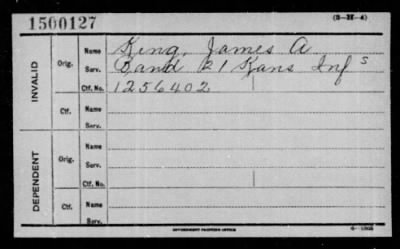 1500127
(3-21-4)
INVALID
Orig.
Name King, James A
Serv. Band 21 Kans Inf s
Ctf. No. 1256402
Ctf.
Name
Serv.
DEPENDENT
Orig.
Name
Serv.
Ctf. No.
Ctf.
Name
Serv.
GOVERNMENT PRINTING OFFICE